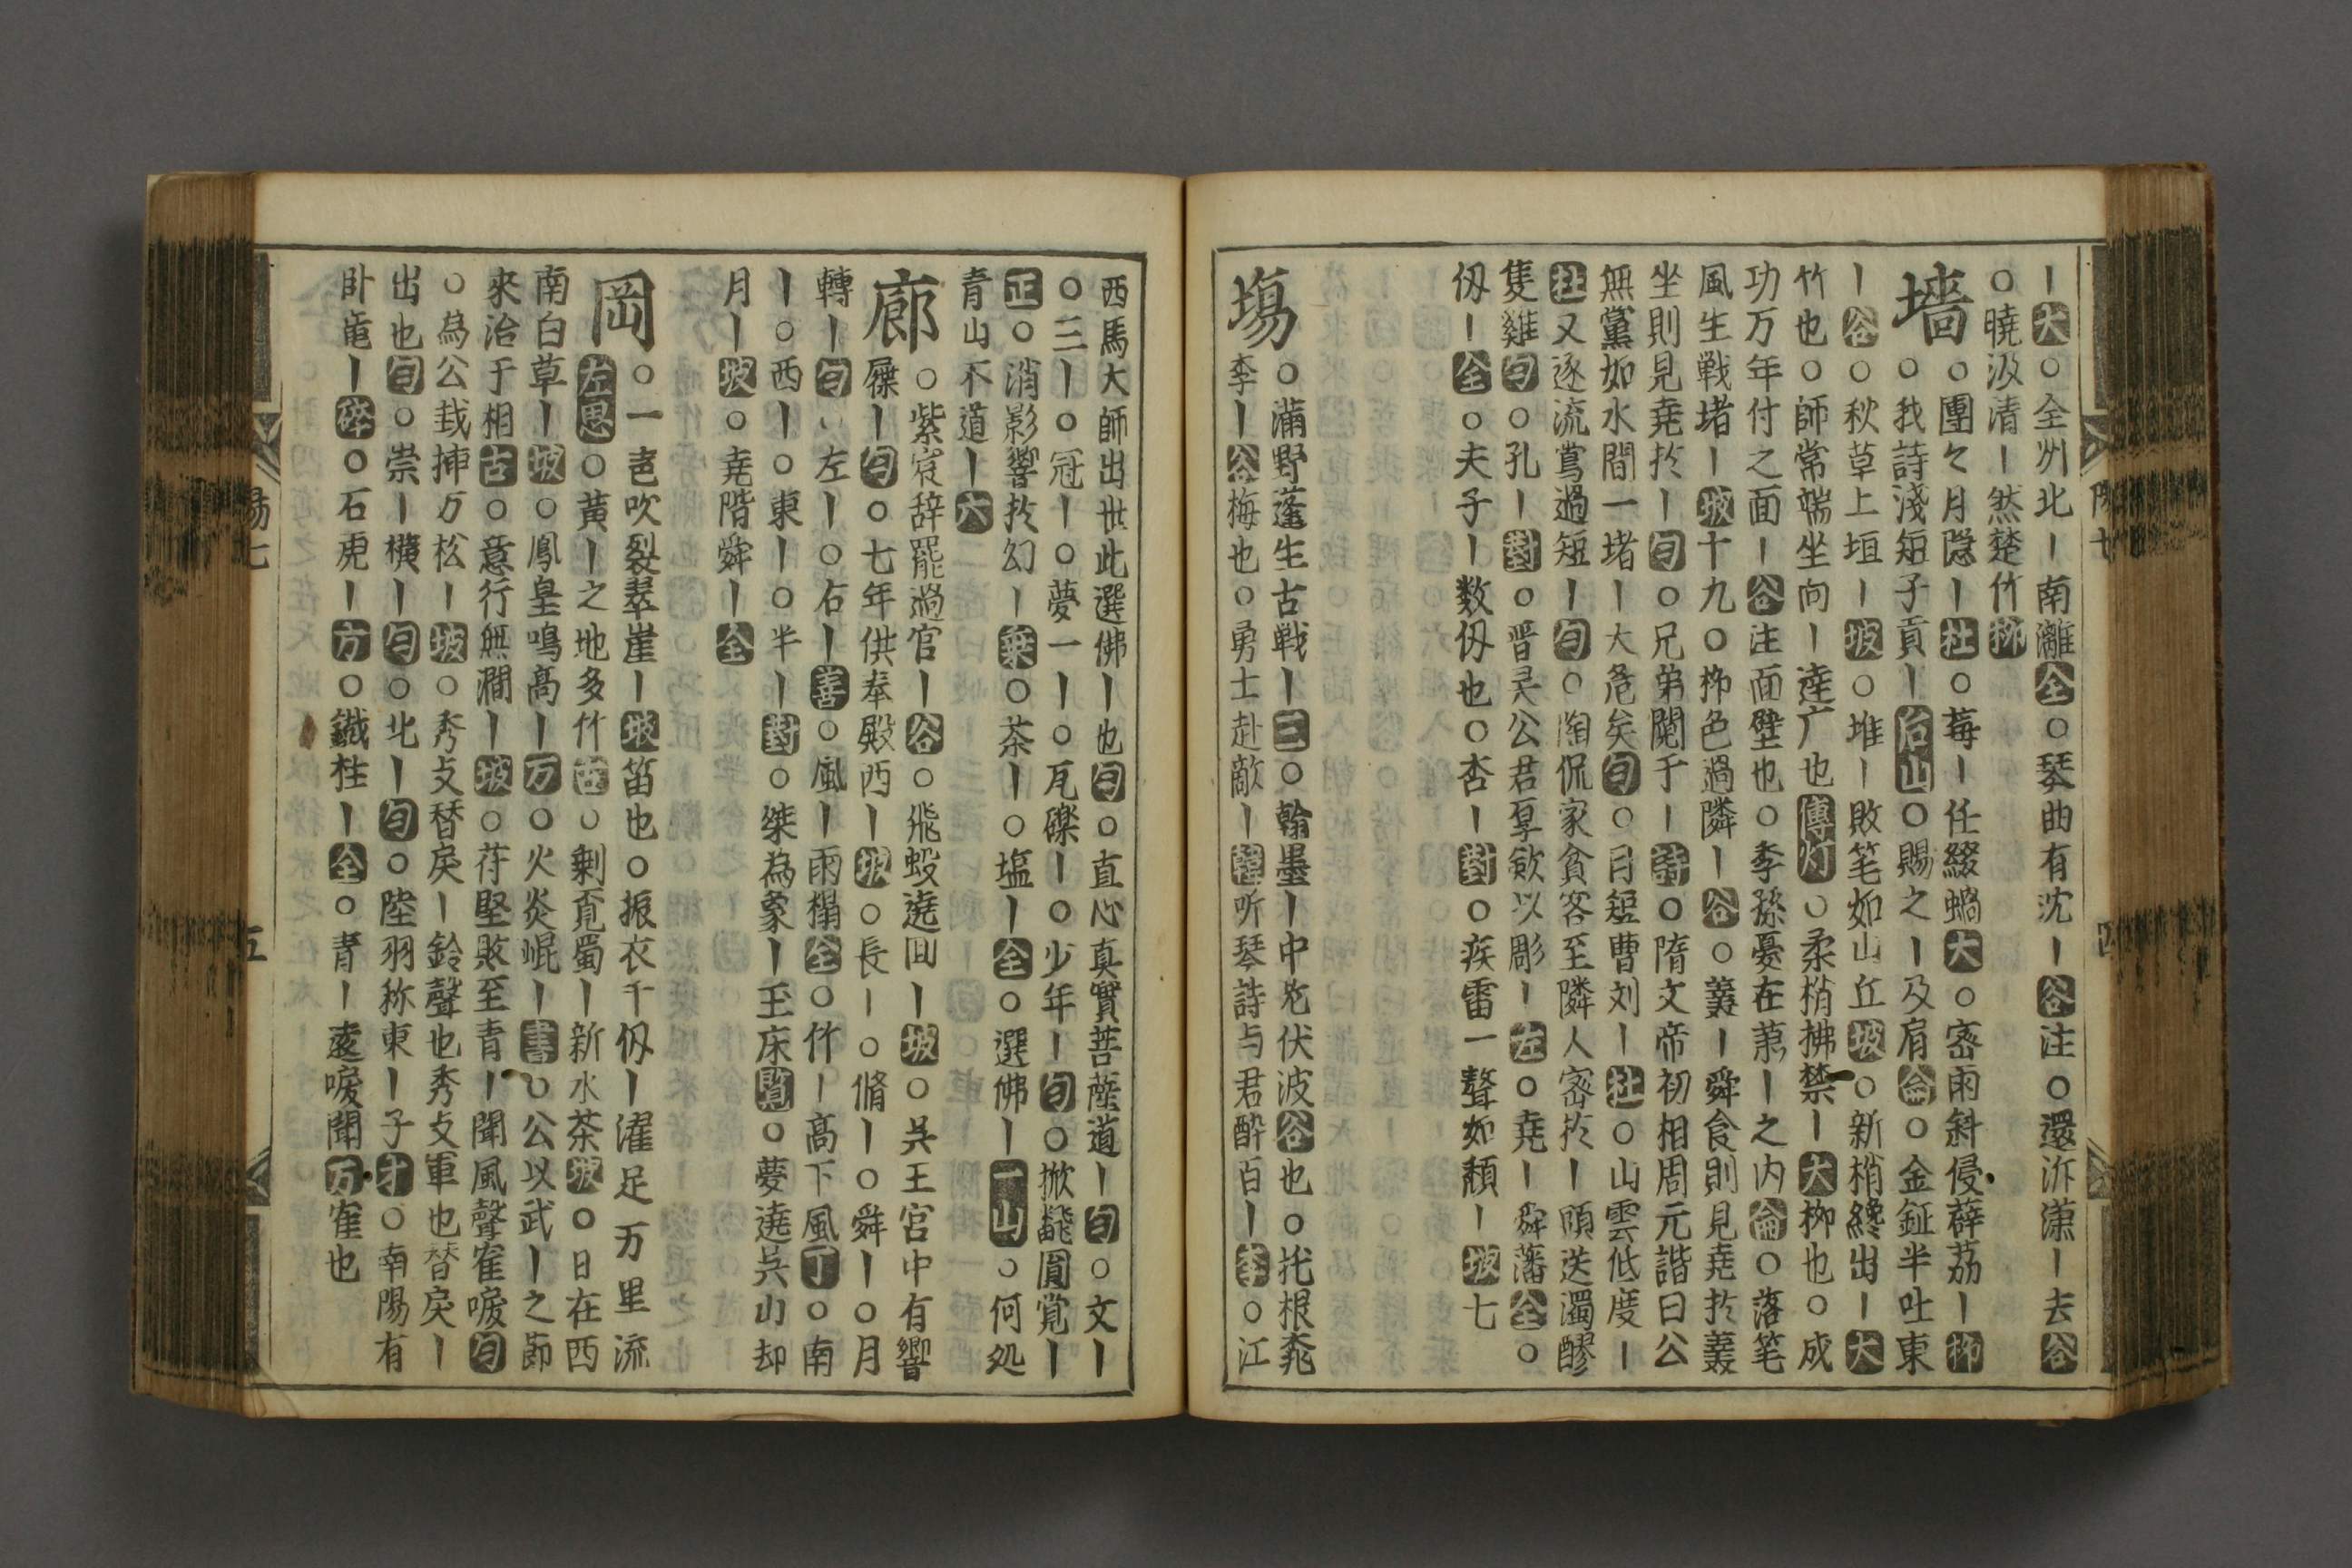 丨大○全州北丨南離全○琴曲有沈丨谷注○還泝藻丨去谷
○曉汲清丨然楚竹柳
墻○團々月隠丨杜○莓丨任綴蝸大○密雨斜侵薜荔丨柳
○我詩淺短子貢丨后山○賜之丨及肩侖○金鉦半吐東
丨谷○秋草上垣丨坡○堆丨敗笔如山丘坡○新梢纔出丨大
竹也○師常端坐向丨達广也傳灯○柔梢拂禁丨大柳也○成
功万年付之面丨谷注面壁也○季孫憂在萧丨之内侖○落笔
風生戦堵丨坡十九○柳色過隣丨谷○䕺丨舜食則見尭扵䕺
坐則見尭扵丨句○兄弟鬩于丨詩○隋文帝初相周元諧曰公
無黨如水間一堵丨大危矣句○目短曹刘丨杜○山雲低度丨
杜又逐流鶯過短丨句○陶侃家貧客至隣人密扵丨頭送濁醪
隻雞句○孔丨對○晋灵公君厚歛以彫丨左○尭丨舜藩全○
仭丨全○夫子丨数仭也○杏丨對○疾雷一聲如頽丨坡七
場○滿野蓬生古戦丨三○翰墨丨中老伏波谷也○托根桃
李丨谷梅也○勇士赴敵丨韓听琴詩与君酔百丨李○江
西馬大師出世此選佛丨也句○直心真實菩薩道丨句○文丨
○三丨○冠丨○夢一丨○瓦礫丨○少年丨句○掀飜圓覚丨
正○消影響扵幻丨乗○茶丨○塩丨全○選佛丨一山○何処
青山不道丨六
廊○紫宸辞罷過官丨谷○飛蚊遶回丨坡○呉王宮中有響
屧丨句○七年供奉殿西丨坡○長丨○脩丨○舜丨○月
轉丨句○左丨○右丨善○風丨雨榻全○竹丨高下風丁○南
丨○西丨○東丨○半丨對○桀為象丨玉床覧○夢遶呉山却
月丨坡○尭階舜丨全
岡○一声吹裂翠崖丨坡笛也○振衣千仭丨濯足万里流
左思○黄丨之地多竹古○剰覔蜀丨新水茶坡○日在西
南白草丨坡○鳳皇鳴高丨万○火炎崐丨書○公以武丨之節
來治于相古○意行無澗丨坡○苻堅敗至青丨聞風聲寉唳句
○為公栽挿万松丨坡○秀攴替戻丨鈴聲也秀攴軍也替戻丨
出也句○崇丨横丨句○北丨句○陸羽称東丨子才○南陽有
卧竜丨碎○石虎丨方○鐵柱丨全○青丨遠唳聞万寉也
陽七
五
陽七
四